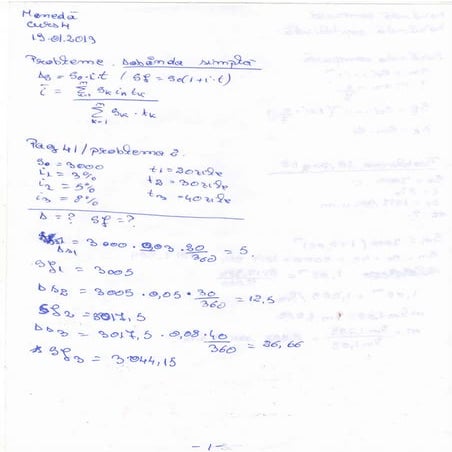 Monedă
Curs 4
19.01.2019
Probleme. Dobânda simplă
Ds = S0·i·t (Sf = S0(1+i·t)
ī = Σ Sk ik tk
Σ Sk · tk
k=1
Pag 41/problema 2.
S0 = 3000 t1 = 20 zile
i1 = 3% t2 = 30 zile
i2 = 5% t3 = 40 zile
i3 = 8%
D = ? Sf = ?
= 3000 · 0,03 · 20/360 = 5.
Sf1 = 3005
Ds2 = 3005 · 0,05 · 30/360 = 12,5
Sf2 = 3017,5
Ds3 = 3017,5 · 0,08 · 40/360 = 26,66
Sf3 = 3044,15
- 1 -